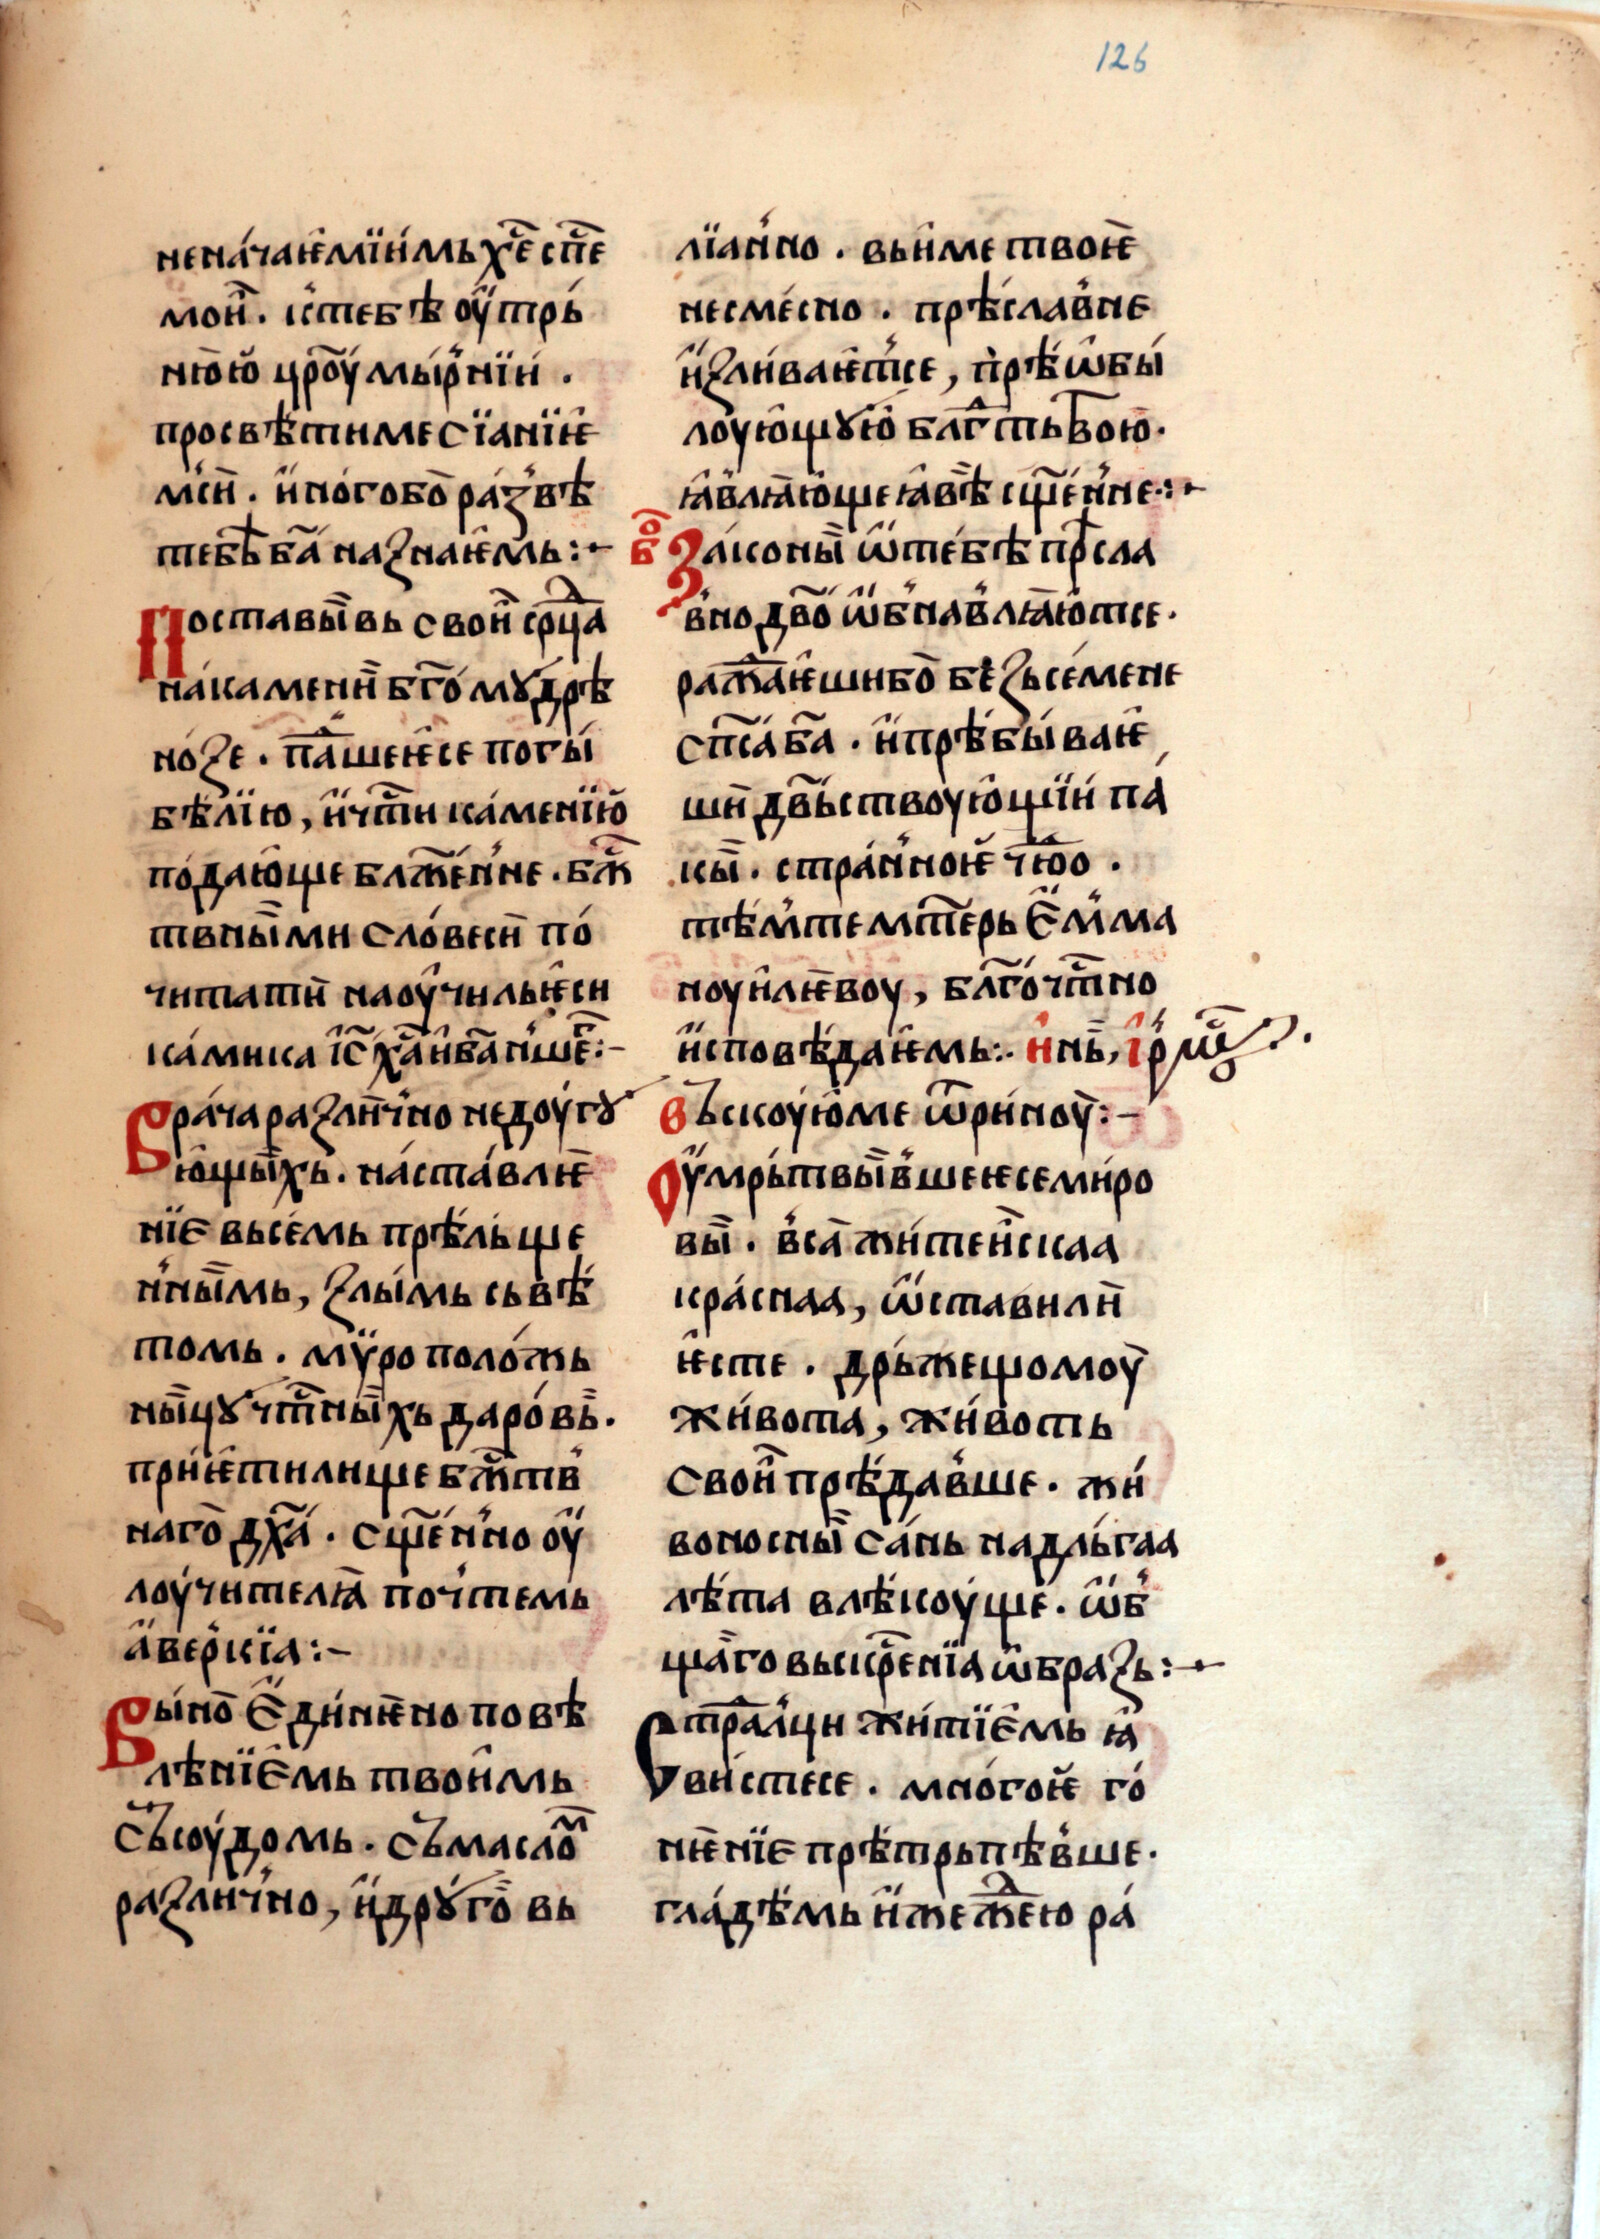 126
ненача́ѥмїимь хе҃ сп҃е
мои҆. к тебѣ оу҆трь
нюю҆ цр҃оу мы́рнїи .
просвѣти ме сїанїѥ
мси҆. и҆ного бо̀ ра́звѣ
тебѣ б҃а на знаѥмь:-
Поставы̏вь свои҆ ср҃ца
на камени б҃гомꙋдрѣ
но́зе . па҃шеѥ се погы́
бѣлїю, и҆ чт҃и ка́менїю
подающе блаж҃е́нне . бж҃
твны̏ми сло́веси по́
читати наоу҆чиль ѥси
ка́мика і҆с х҃а и҆ б҃а нш҃е:-
Врача различно недоу́гꙋ
ющы̏хь . на́ста́влѥ
нїе вьсе́мь прѣльще
нны̏мь, злы́мь сьвѣ
томь . мѵ́ро поло́жь
ны̏цꙋ чт҃ны̏хь даро́вь.
приѥтилище бж҃тв
наго дх҃а . сщ҃е́нно оу҆
лоу́чителꙗ почтемь
а҆веркїа:-
Вы́но є҆ди́нѥно повѣ
лѣнїемь твоимь
съ соу́домь . съ масло̑м
различно, и҆ дрꙋго̀ вь
лїанно . вь и҆ме твоѥ
несме́сно . прѣсла́вне
и҆зли́ваѥтсе, прѣѡ҆бы́
лоующꙋю бл҃гть твою.
ꙗ҆влꙗюще ꙗ҆вѣ сщ҃е́нне:-
бо Законы̏ ѿ те́бѣ прсла
вно дв҃о ѡ҆бнавлꙗютсе.
раж҃аѥши бо̀ безь се́мене
сп҃са б҃а . и҆ прѣбы́ваѥ
ши дв҃ьствоующїи па́
кы̏ . стра́нноѥ чю҃о .
тѣмте мт҃ерь є҆мма
ноуи҆лѥвоу, бл҃гочт҃но
и҆сповѣдаѥмь:. и҆ нꙗ̀, і҆рмⷭ.
въскоую ме ѿри́ноу:-
Оу҆мрьтвы̏вше ѥсе ми́ро
вы̏ . вса̀ жи́те́искаа
кра́снаа, ѡ҆ставили
ѥсте . дрьжещомоу
жи́вота, жи́воть
свои҆ прѣдавше . жи́
воносны̏ са́нь на дль́гаа
лѣта влѣкоу́ще . ѡ҆б
ща̀го вьскр҃енїа ѡ҆бразь:-
Страдлци жи́тїемь ꙗ҆
ви́стесе . мно́гоѥ го́
нѥнїе прѣтрьпѣвше.
гла́дѣмь и҆ же҃жею ра́